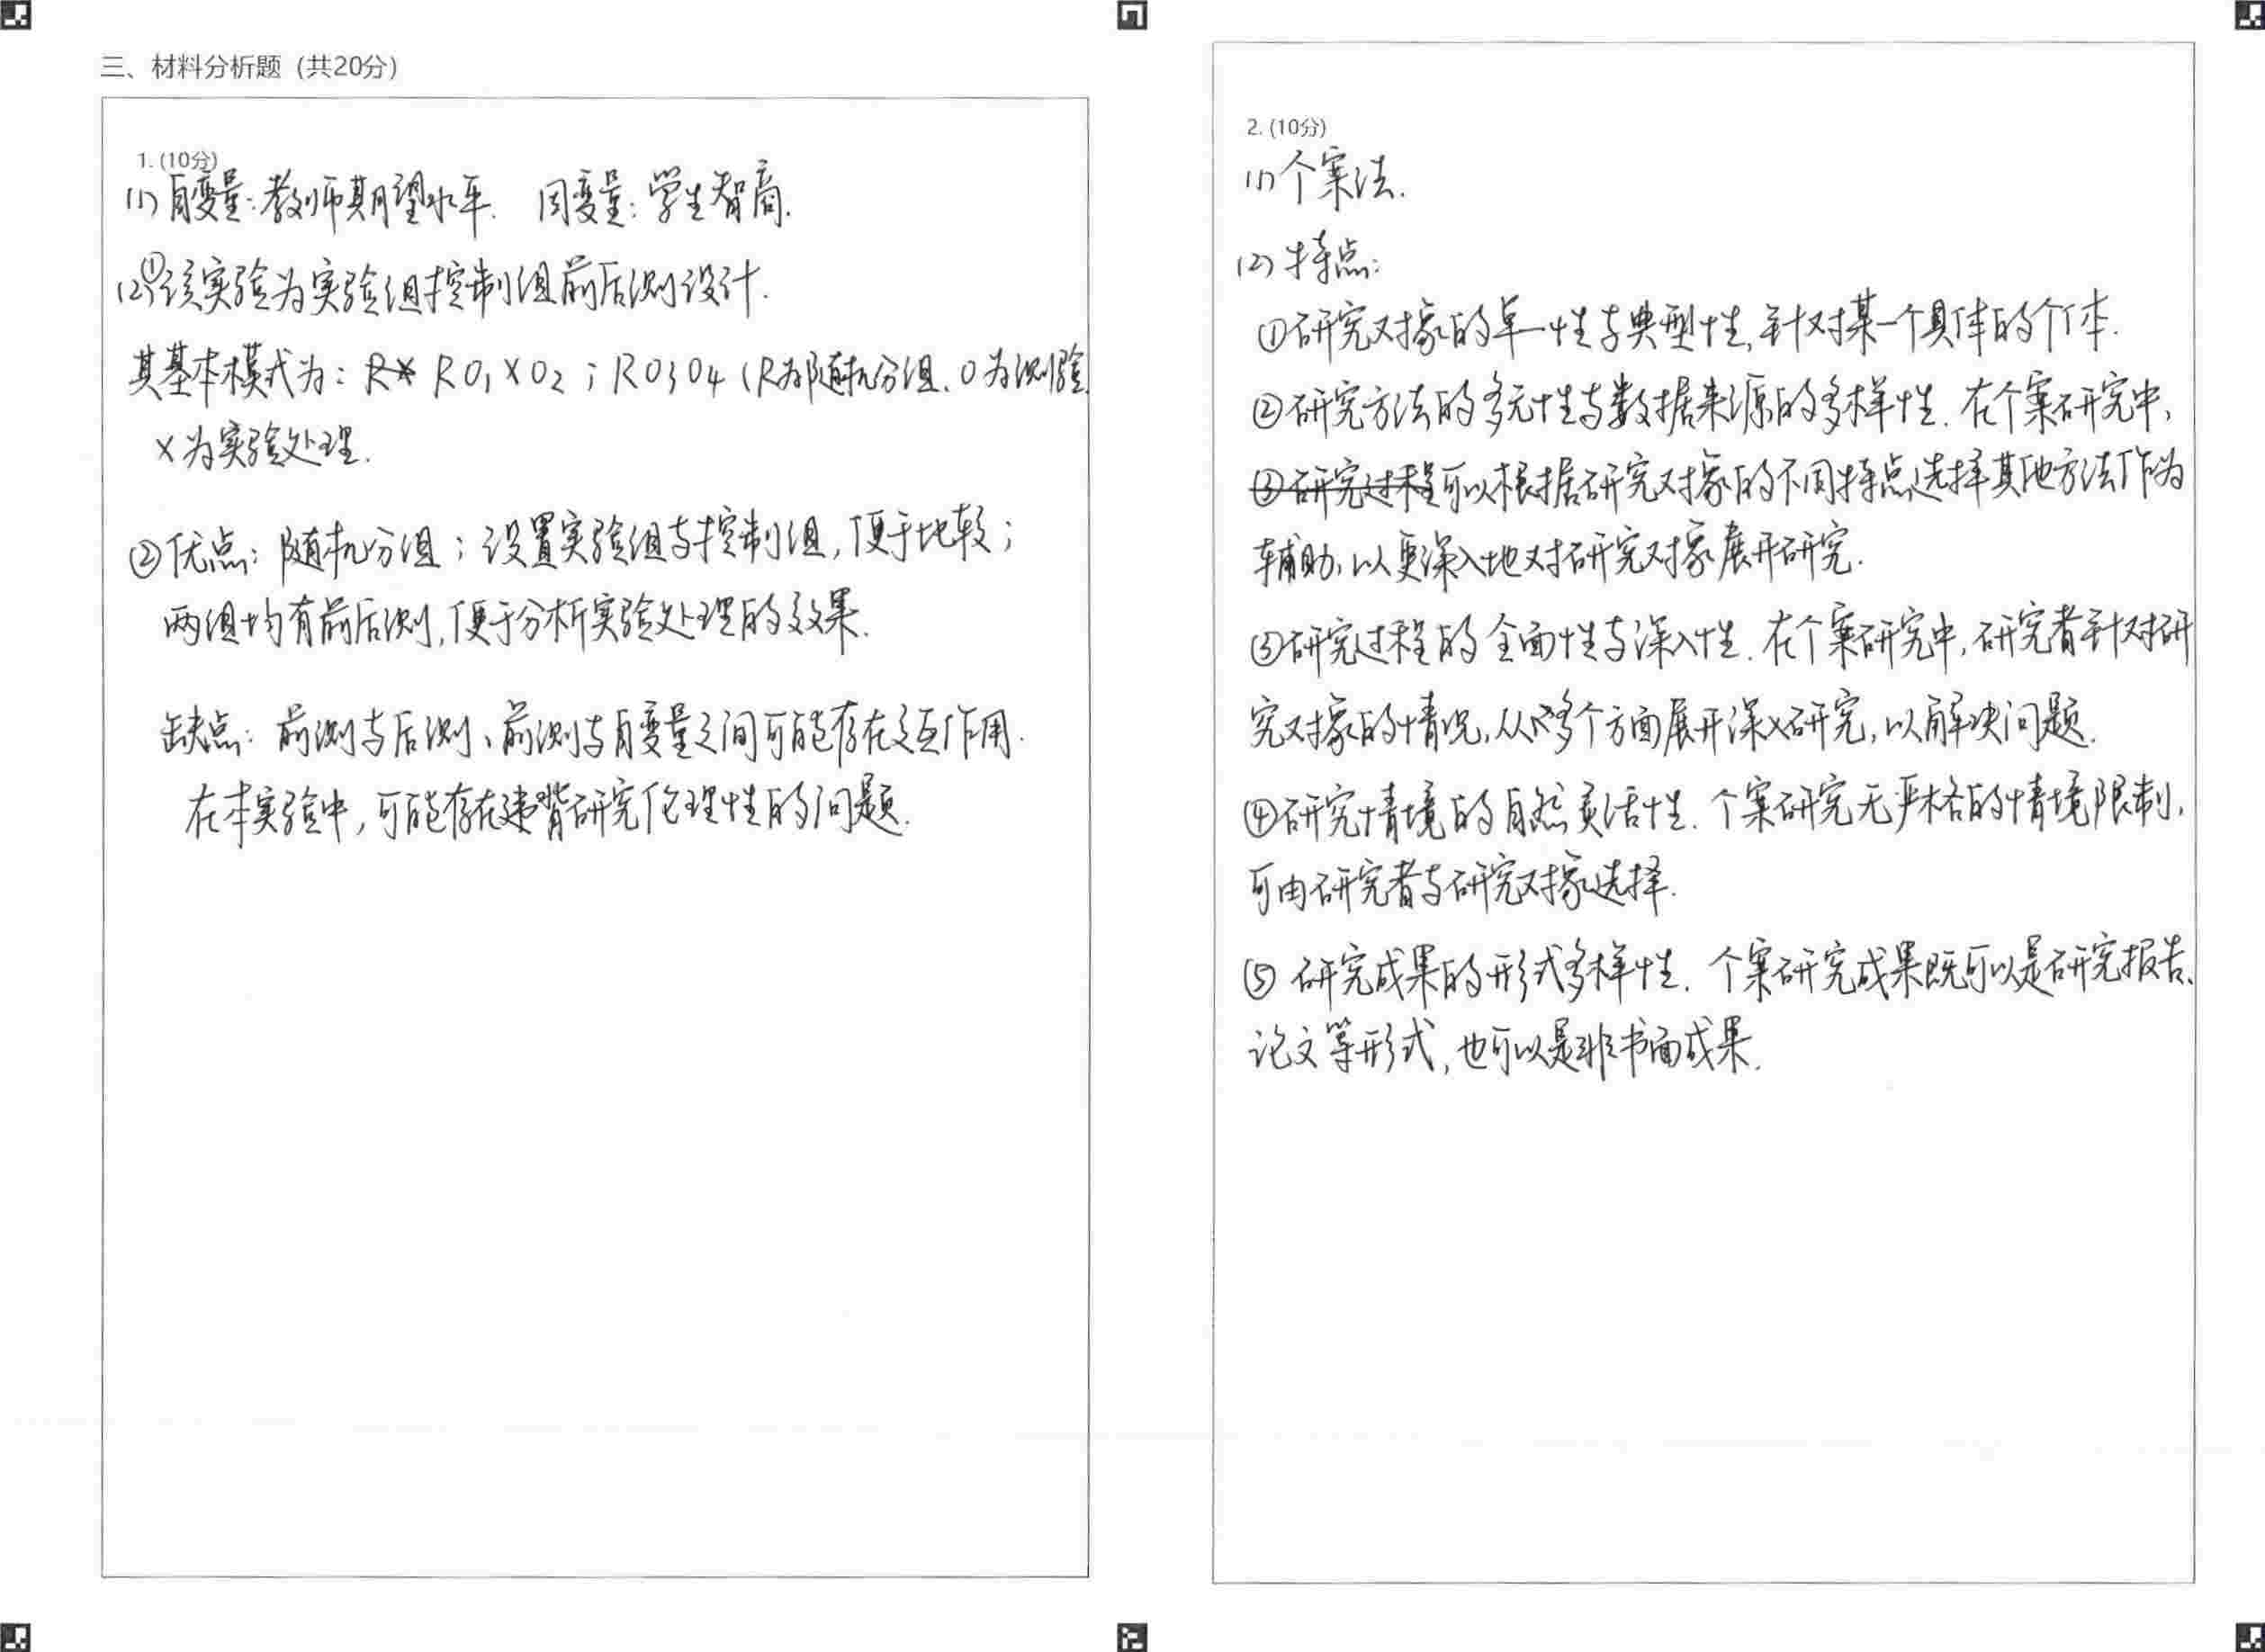 三、材料分析题（共20分）
1. (10分)
(1) 自变量：教师期望水平. 因变量：学生智商.
(2)①该实验为实验组控制组前后测设计.
其基本模式为：R RO₁XO₂；RO3O4（R为随机分组、O为测验.
X为实验处理.
②优点：随机分组；设置实验组与控制组,便于比较；
两组均有前后测,便于分析实验处理的效果.
缺点：前测与后测、前测与自变量之间可能存在交互作用.
在本实验中,可能存在违背研究伦理性的问题.
2. (10分)
(1) 个案法.
(2) 特点：
①研究对象的单一性与典型性,针对某一个具体的个体.
②研究方法的多元性与数据来源的多样性.在个案研究中,
③研究过程可以根据研究对象的不同特点选择其他方法作为
辅助,以更深入地对研究对象展开研究.
③研究过程的全面性与深入性.在个案研究中,研究者针对研
究对象的情况,从多个方面展开深入研究,以解决问题.
④研究情境的自然灵活性.个案研究无严格的情境限制,
可由研究者与研究对象选择.
⑤研究成果的形式多样性.个案研究成果既可以是研究报告、
论文等形式,也可以是非书面成果.